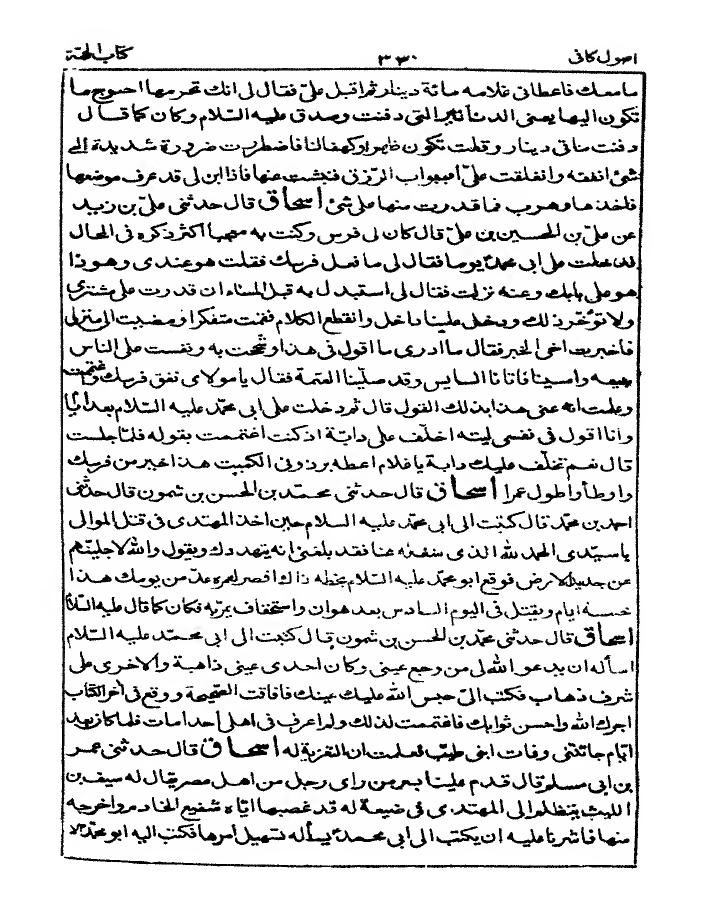 اصول كافى ٣٣٠ كتاب الحجّة
ما معك فاعطانى غلامه مائة دينار ثم اقبل علىّ فقال لى انك تحرمها احوج ما
تكون اليها يعنى الدنانير التى دفنت وصدق عليه السّلام وكان كما قال
دفنت مأتى دينار وقلت تكون ظهرا وكهفا لنا فاضطررت ضرورة شديدة الى
شئ انفقه وانغلقت علىّ ابواب الرّزق فنبشت عنها فاذا ابن لى قد عرف موضعها
فاخذها وهرب فما قدرت منها على شئ اسحاق قال حدثنى علىّ بن زيد
عن علىّ بن الحسين بن علىّ قال كان لى فرس وكنت به معجبا اكثر ذكره فى المحال
فدخلت على ابى محمدؑ يوما فقال لى ما فعل فرسك فقلت هو عندى وهوذا
هو على بابك وعنه نزلت فقال لى استبدل به قبل المساء ان قدرت على مشترى
ولا تؤخر ذلك ودخل علينا داخل وانقطع الكلام فقمت متفكرا ومضيت الى منزلى
فاخبرت اخى الخبر فقال ما ادرى ما اقول فى هذا وشححت به ونفست على الناس
ببيعه وامسينا فاتانا السايس وقد صلّينا العتمة فقال يا مولاى نفق فرسك فاغتممت
وعلمت انه عنى هذا بذلك القول قال ثم دخلت على ابى محمّد عليه السّلام بعد ايّام
وانا اقول فى نفسى ليته اخلف علىّ دابّة اذ كنت اغتممت بقوله فلمّا جلست
قال نعم نخلف عليك دابة يا غلام اعطه برذونى الكميت هذا خير من فرسك
واوطأ واطول عمرا اسحاق قال حدثنى محمّد بن الحسن بن شمون قال حدثنى
احمد بن محمّد قال كتبت الى ابى محمّد عليه السلام حين اخذ المهتدى فى قتل الموالى
يا سيّدى الحمد لله الذى شغله عنا فقد بلغنى انه يتهددك ويقول والله لاجلينّهم
عن جديد الارض فوقع ابو محمّد عليه السّلام بخطه ذاك اقصر لعمره عدّ من يومك هذا
خمسة ايام ويقتل فى اليوم السادس بعد هوان واستخفاف يمرّ به فكان كما قال عليه السّلام
اسحاق قال حدثنى محمّد بن الحسن بن شمون قال كتبت الى ابى محمّد عليه السّلام
اسأله ان يدعو الله لى من وجع عينى وكان احدى عينى ذاهبة والاخرى على
شرف ذهاب فكتب الىّ حبس الله عليك عينك فافاقت الصّحيحة ووقع فى آخر الكتاب
اجرك الله واحسن ثوابك فاغتممت لذلك ولم اعرف فى اهلى احدا مات فلما كان بعد
ايّام جائتنى وفات ابنى طيّب فعلمت ان التعزية له اسحاق قال حدثنى عمر
بن ابى مسلم قال قدم علينا بسر من راى رجل من اهل مصر يقال له سيف بن
الليث يتظلم الى المهتدى فى ضيعة له قد غصبها ايّاه شفيع الخادم واخرجه
منها فاشرنا عليه ان يكتب الى ابى محمدؑ يسأله تسهيل امرها فكتب اليه ابو محمّد